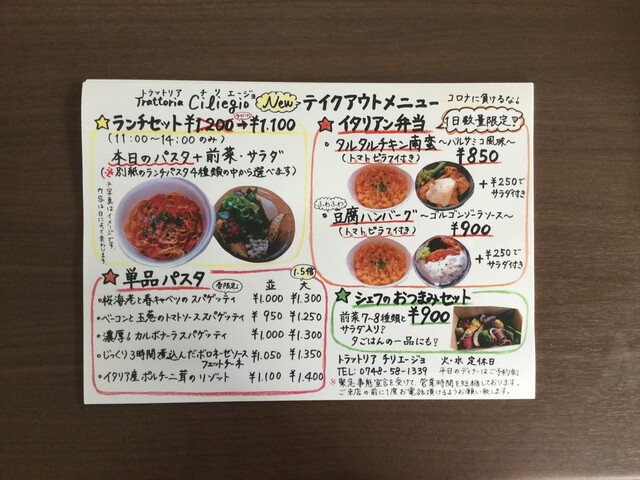 トラットリア チリエージョ
Trattoria Ciliegio New テイクアウトメニュー
コロナに負けるな!
☆ランチセット ¥1.200→¥1.100
(11:00〜14:00のみ)
本日のパスタ+前菜・サラダ
(※別紙のランチパスタ4種類の中から選べます)
※写真はイメージです。
内容は日によって変わります。
★単品パスタ
春限定!
並
1.5倍
大
・桜海老と春キャベツのスパゲッティ ¥1.000 ¥1.300
・ベーコンと玉葱のトマトソーススパゲッティ ¥950 ¥1.250
・濃厚!カルボナーラスパゲッティ ¥1.000 ¥1.300
・じっくり3時間煮込んだボロネーゼソース
フェットチーネ ¥1.050 ¥1.350
・イタリア産ポルチーニ茸のリゾット ¥1.100 ¥1.400
★イタリアン弁当
1日数量限定!
・タルタルチキン南蛮〜バルサミコ風味〜
(トマトピラフ付き) ¥850
+¥250で
サラダ付き
ふわふわ
・豆腐ハンバーグ〜ゴルゴンゾーラソース〜
(トマトピラフ付き) ¥900
+¥250で
サラダ付き
★シェフのおつまみセット
前菜7〜8種類と ¥900
サラダ入り?
夕ごはんの一品にも?
トラットリア チリエージョ 火・水 定休日
TEL:0748-58-1339 平日のディナーはご予約制
※緊急事態宣言を受けて、営業時間を短縮しております。
ご来店の前に1度お電話頂けるようお願い致します。